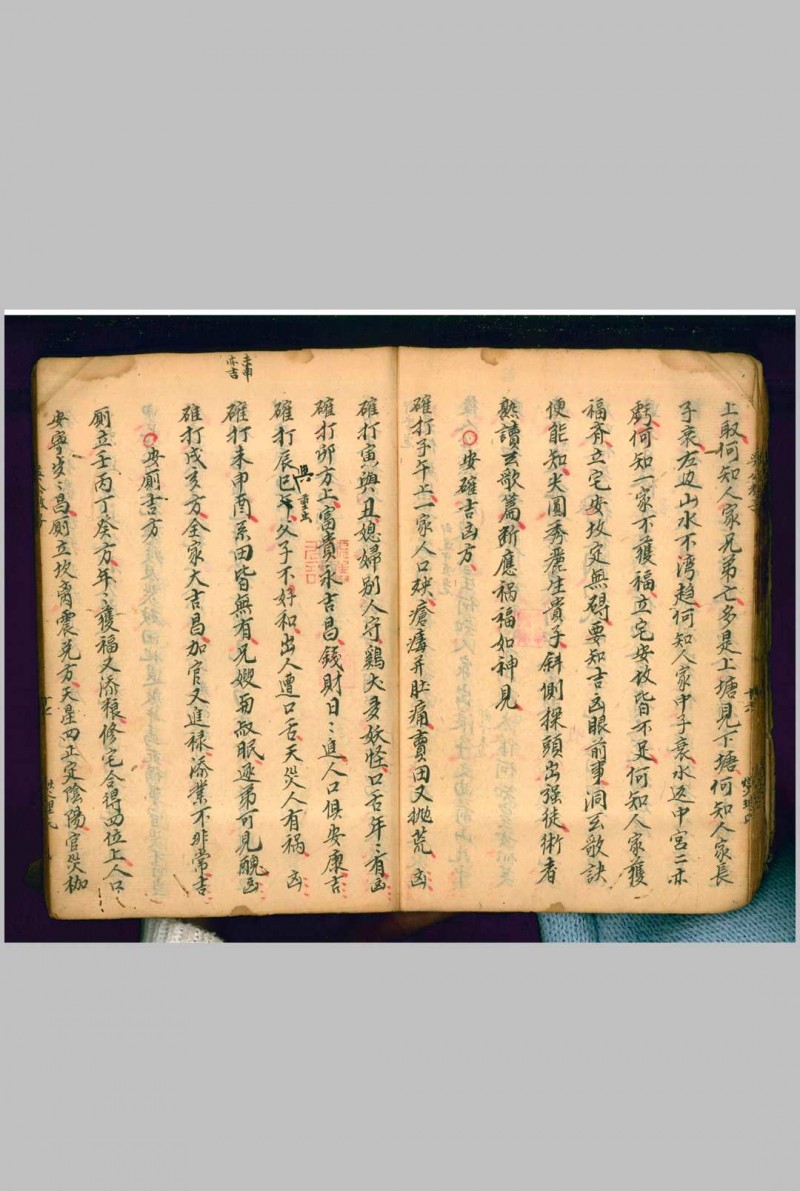 上取何知人家兄弟亡多是上塘見下塘何知人家長
子衰左边山水不湾趋何知人家中子衰水返中宮二亦
虧何知一家不獲福立宅安坟皆不足何知人家獲
福斉立宅安坟定無碍要知吉凶眼前事洞玄歌訣
便能知尖圓秀麗生貴子斜側探頭出强徒術者
熟讀玄歌篇断應禍福如神見
○安碓吉凶方
碓打子午上一家人口殃瘡痛并肚痛賣田又抛荒 凶
碓打寅與丑媳婦別人守鷄犬多妖怪口舌年〻有凶
碓打卯方上富貴永吉昌錢財日〻進人口俱安康吉
碓打辰巳父子不好和出人遭口舌天災人有禍 凶
與 重出
碓打未申酉系田皆無有兄嫂与叔眠逐弟可見醜凶
碓打戌亥方全家大吉昌加官又進禄添業不非常吉
壬申
亦吉
○安厠吉方
厠立壬丙丁癸方年〻獲福又添粮修宅合得四位上人口
安寧歩〻昌厠立坎离震兑方天星四正定陰陽官災枷